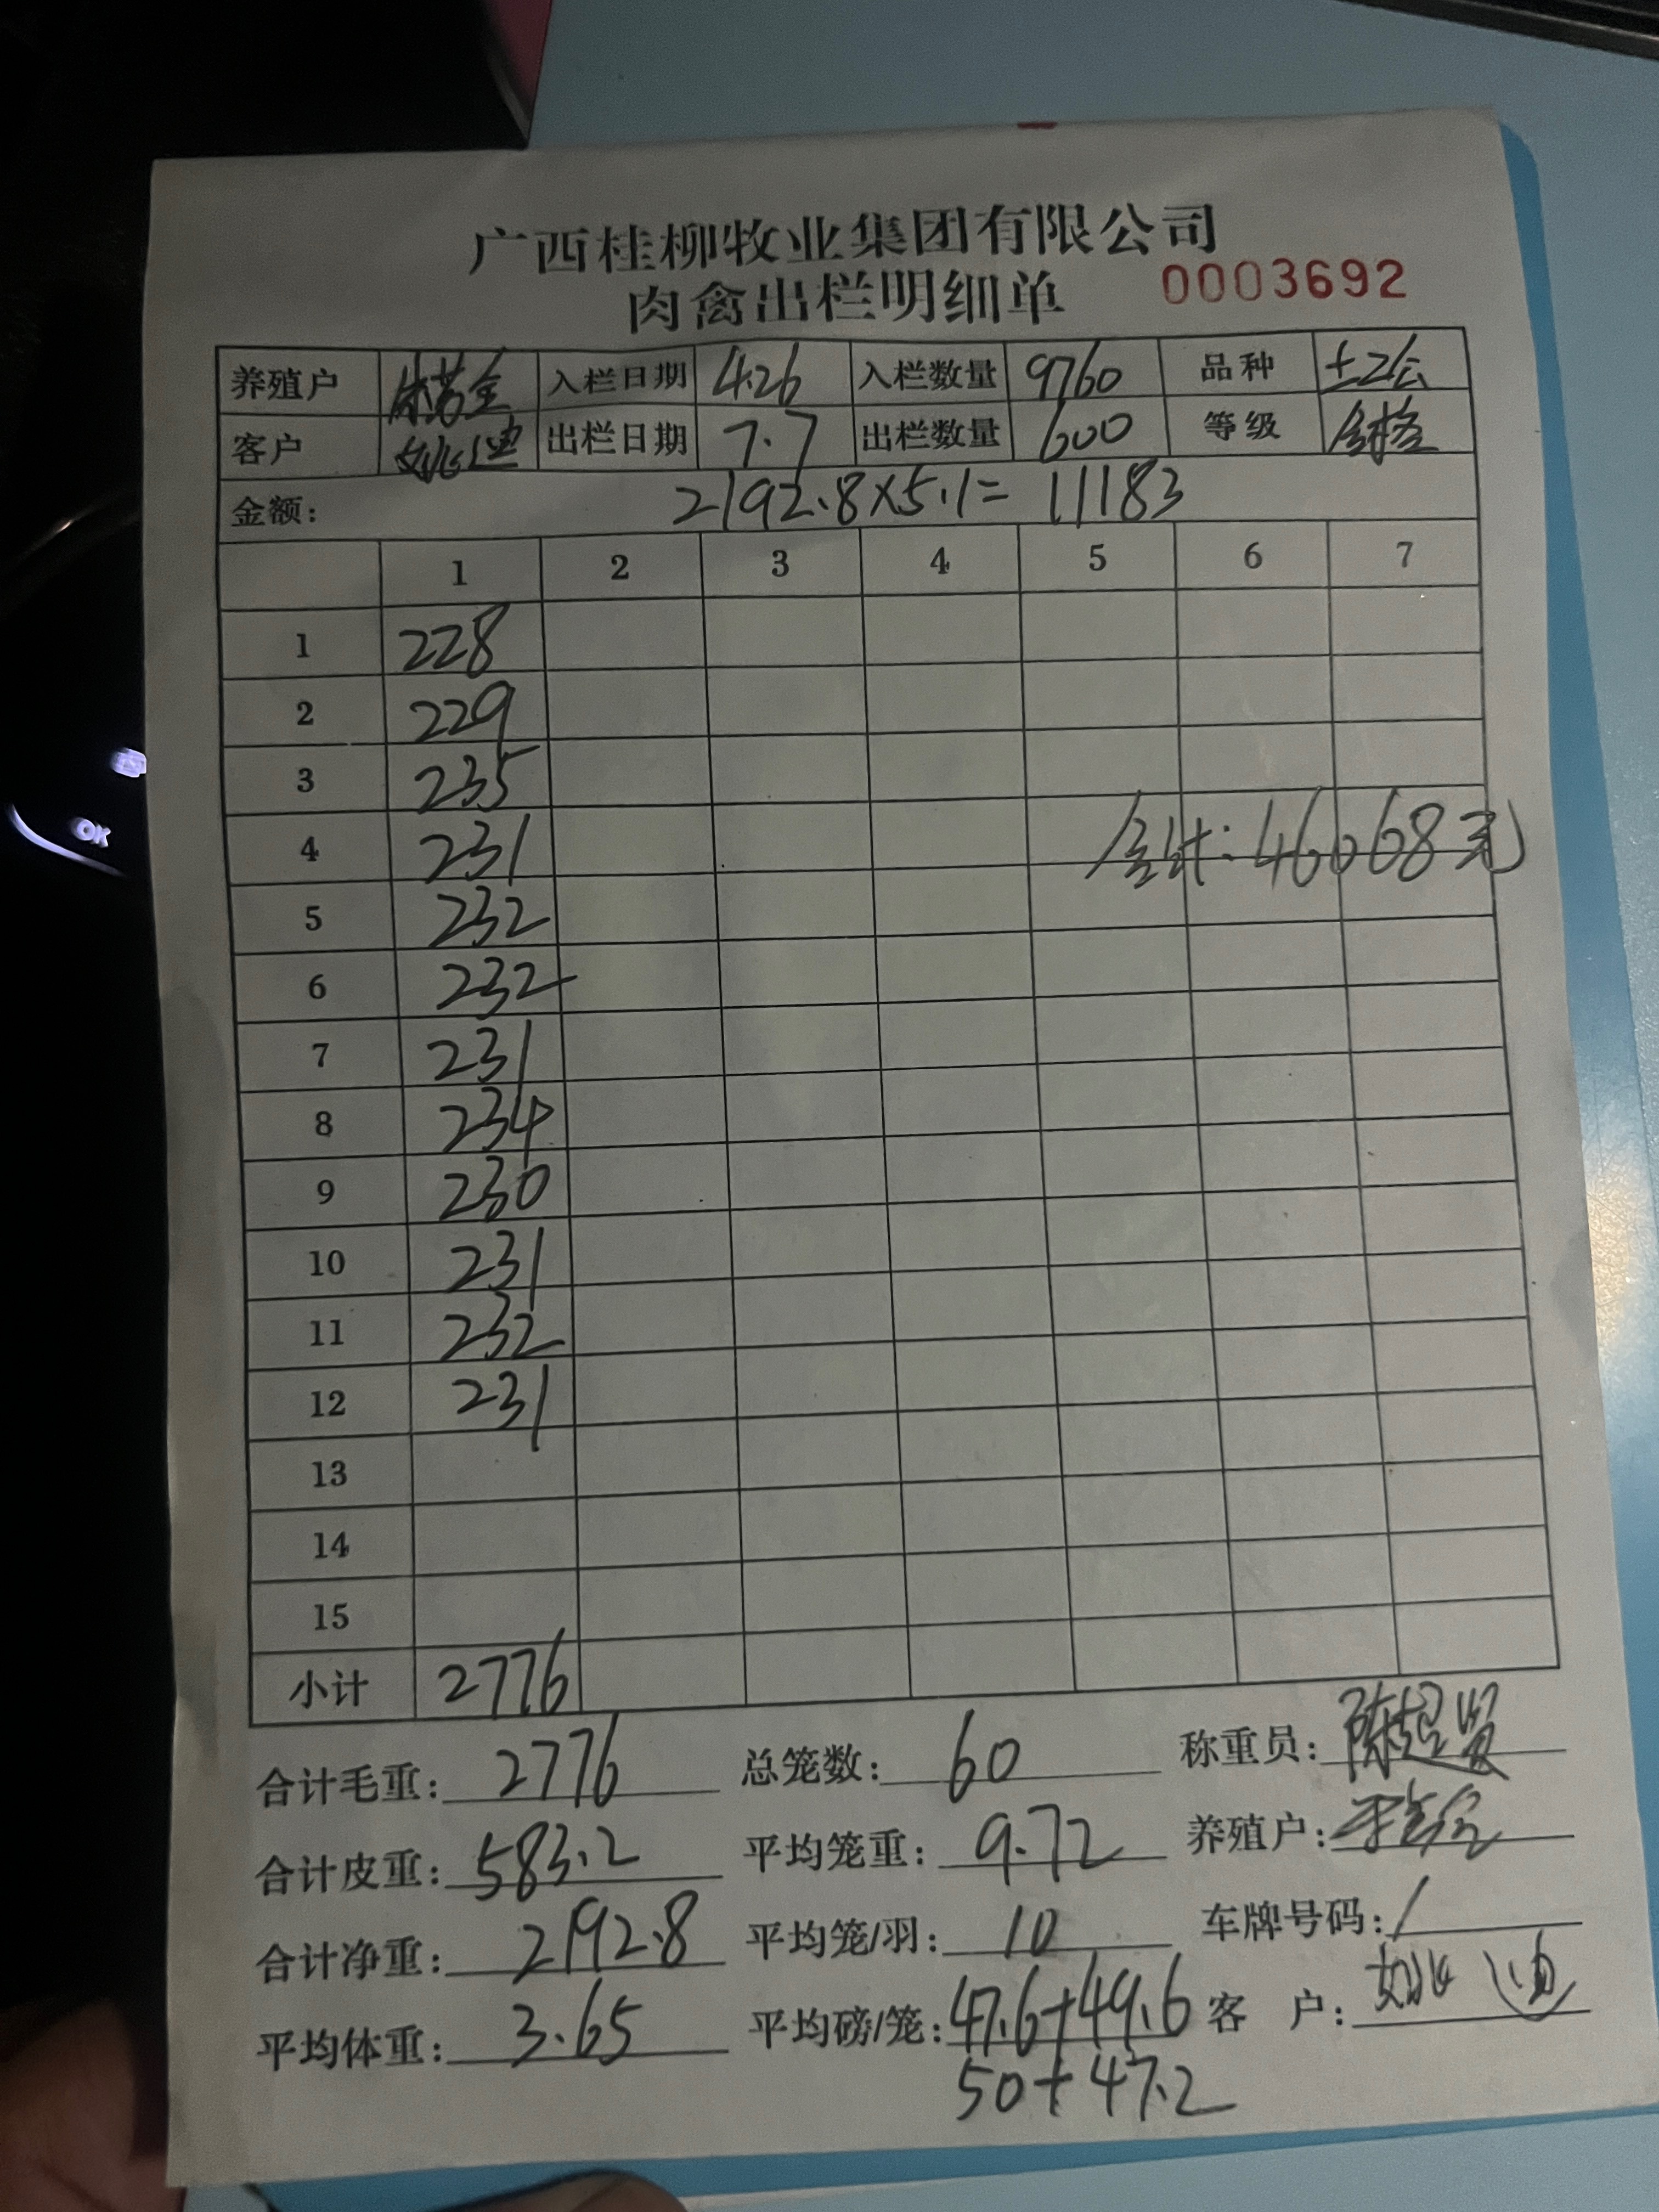 广西桂柳牧业集团有限公司
肉禽出栏明细单 0003692
养殖户 入栏日期 4.26 入栏数量 9760 品种 土2公
客户 出栏日期 7.7 出栏数量 600 等级 合格
金额: 2192.8×5.1= 11183
1 2 3 4 5 6 7
1 228
2 229
3 235
4 231 合计:46068元
5 232
6 232
7 231
8 234
9 230
10 231
11 232
12 231
13
14
15
小计 2776
合计毛重: 2776 总笼数: 60 称重员: 陈超贤
合计皮重: 583.2 平均笼重: 9.72 养殖户:
合计净重: 2192.8 平均笼/羽: 10 车牌号码: /
平均体重: 3.65 平均磅/笼: 47.6+49.6 客 户:
50+47.2
OK